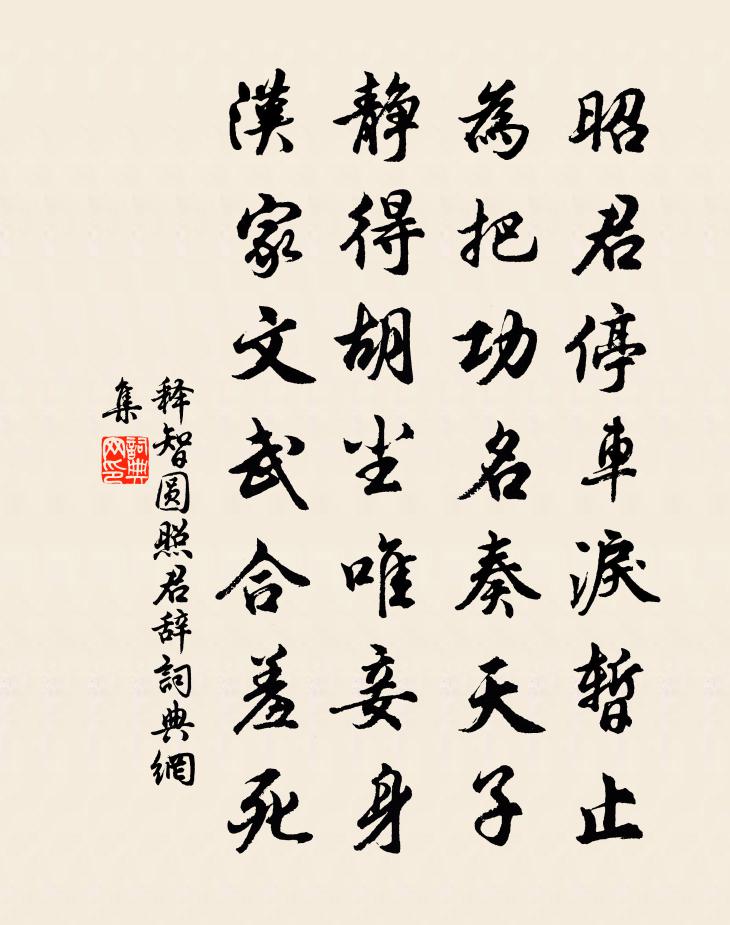 昭君停車淚暫止
為把功名奏天子
靜得胡尘唯妾身
漢家文武合羞死
释智圆照君辞詞典網
集
詞典网印